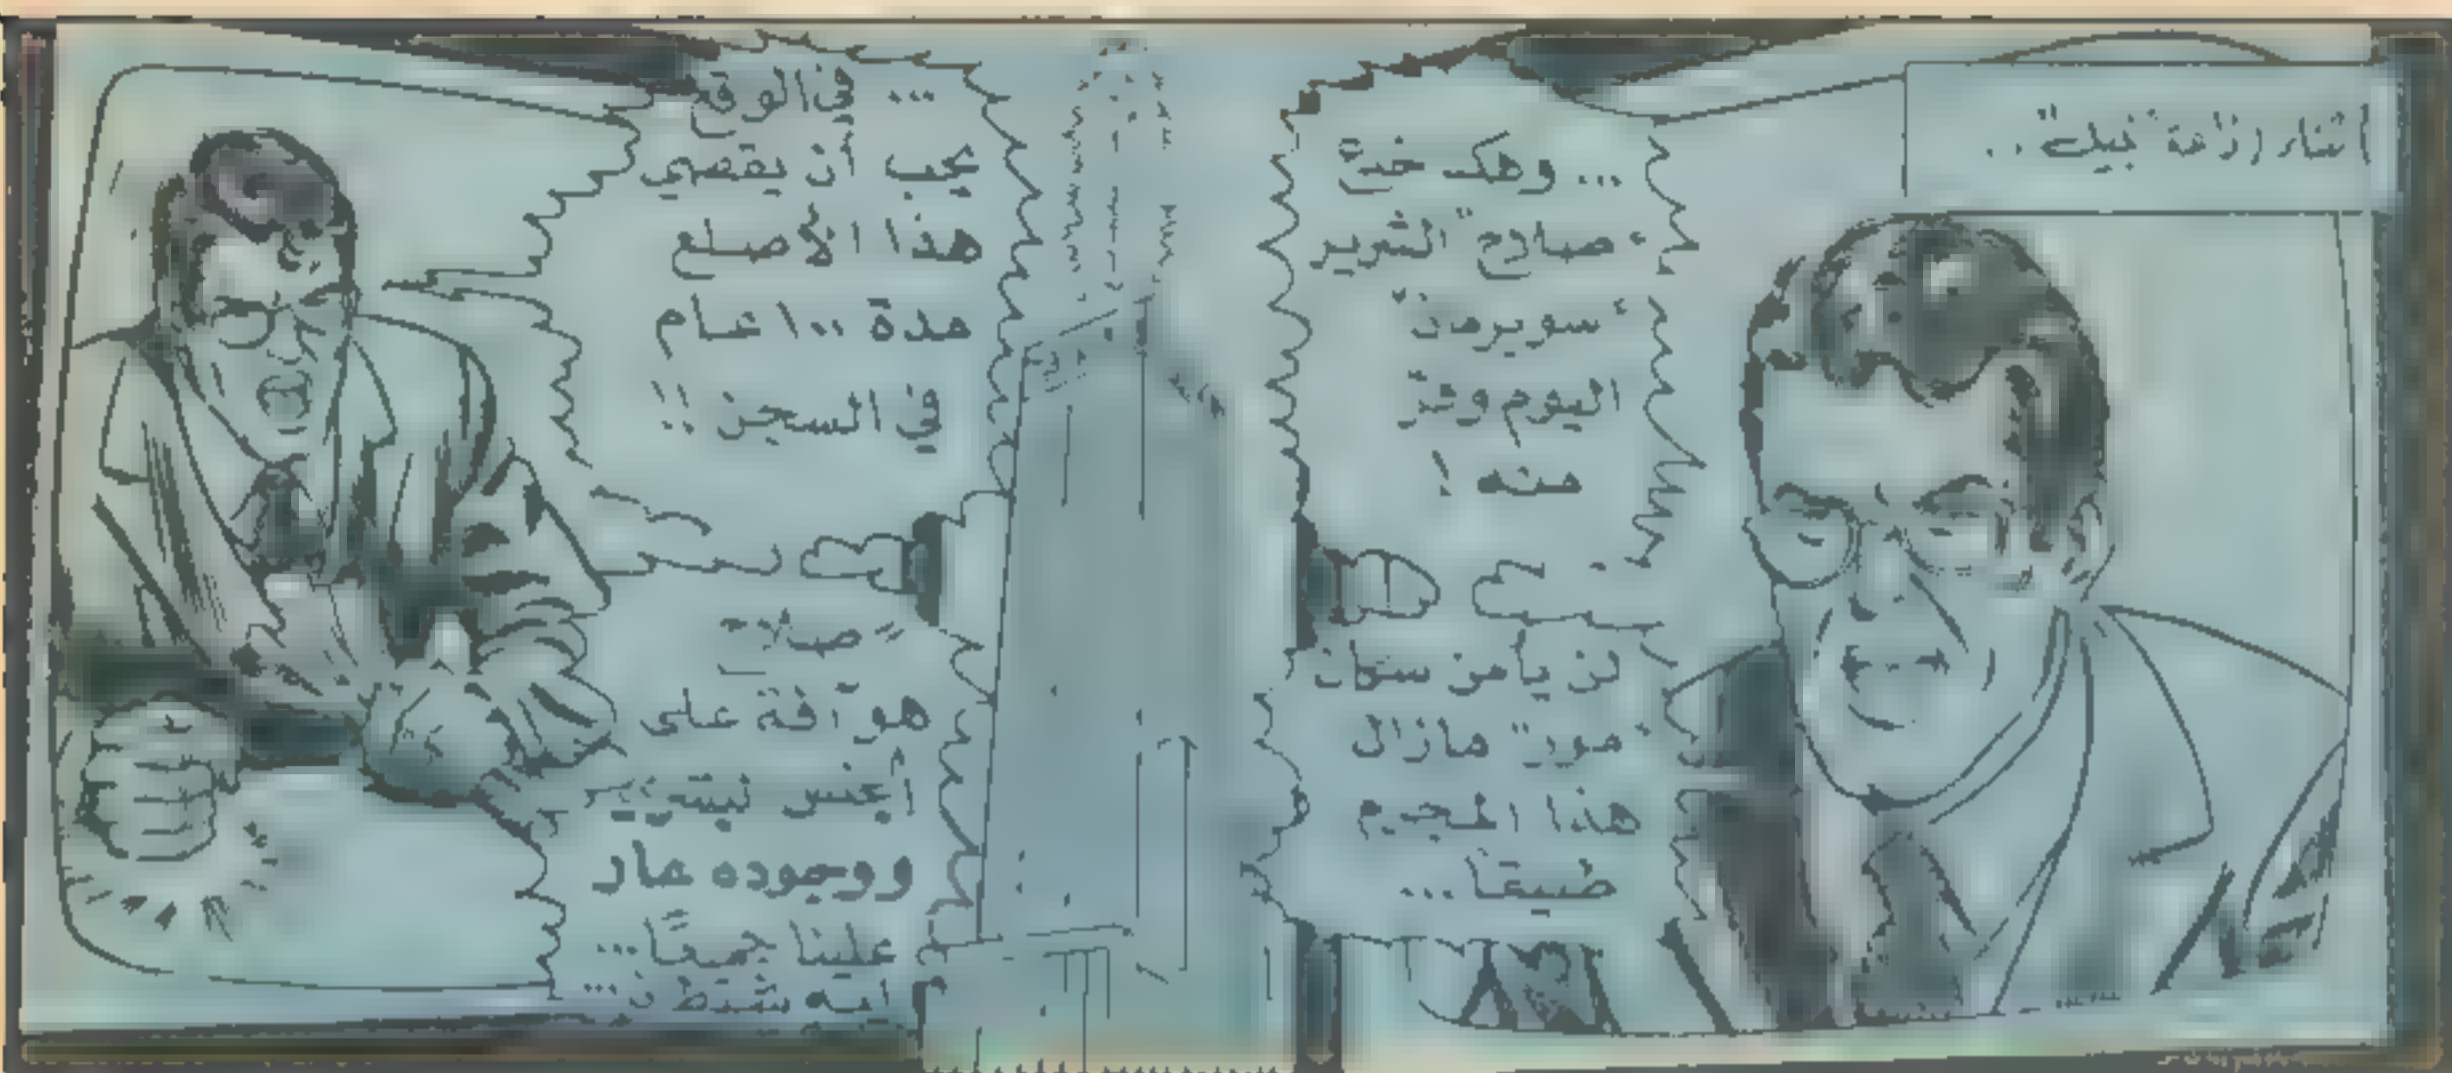 أثناء إذاعة "نبيل"..
... وهكذا خدع
"صلاح" الشرير
"سوبرمان"
اليوم وفرّ
منه!
لن يأمن سكان
"مور" مازال
هذا المجرم
طليقاً...
... في الواقع
يجب أن يقضي
هذا الأصلع
مدة ١٠٠ عام
في السجن!!
"صلاح"
هو آفة على
الجنس البشري
ووجوده عار
علينا جميعًا...
إنه شيطان...